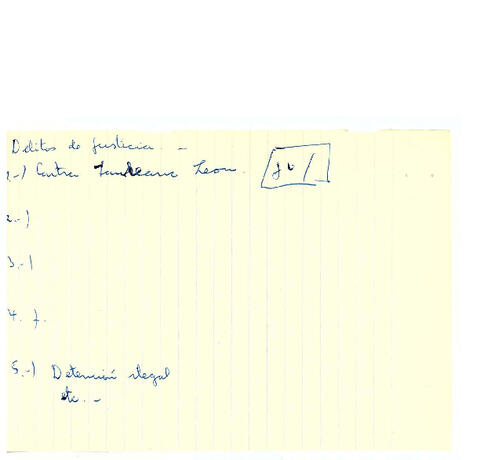 Delitos de Justicia. -
1-) Contra León.
2.-)
3.-)
4.-).
5.-) Detención ilegal
etc. -